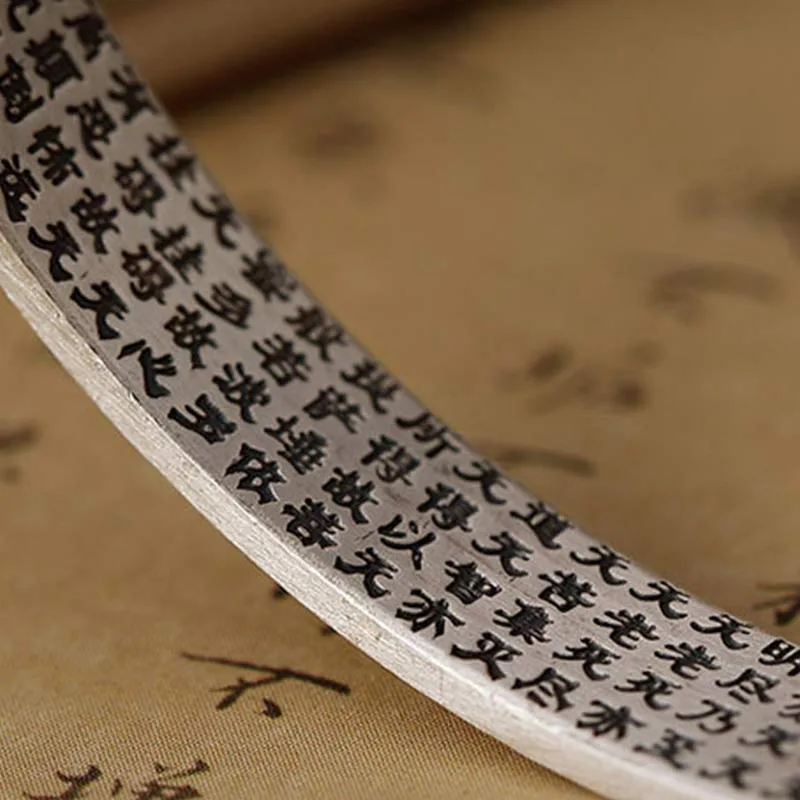 明尽乃至
无老死亦
无老死尽
无苦集灭
道无智亦
无得以无
所得故菩
提萨埵依
般若波罗
蜜多故心
无挂碍无
挂碍故无
有恐怖远
离颠倒